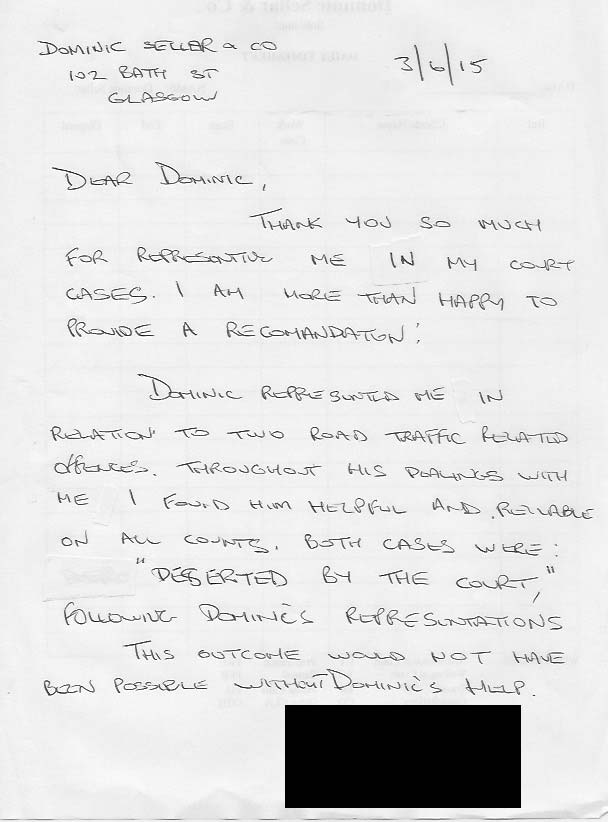 DOMINIC SELLAR & CO
3/6/15
102 BATH ST
GLASGOW
DEAR DOMINIC,
THANK YOU SO MUCH
FOR REPRESENTING ME IN MY COURT
CASES. I AM MORE THAN HAPPY TO
PROVIDE A RECOMANDATION:
DOMINIC REPRESENTED ME IN
RELATION TO TWO ROAD TRAFFIC RELATED
OFFENCES. THROUGHOUT HIS DEALINGS WITH
ME I FOUND HIM HELPFUL AND RELIABLE
ON ALL COUNTS. BOTH CASES WERE:
"DESERTED BY THE COURT,"
FOLLOWING DOMINIC'S REPRESENTATIONS
THIS OUTCOME WOULD NOT HAVE
BEEN POSSIBLE WITHOUT DOMINIC'S HELP.